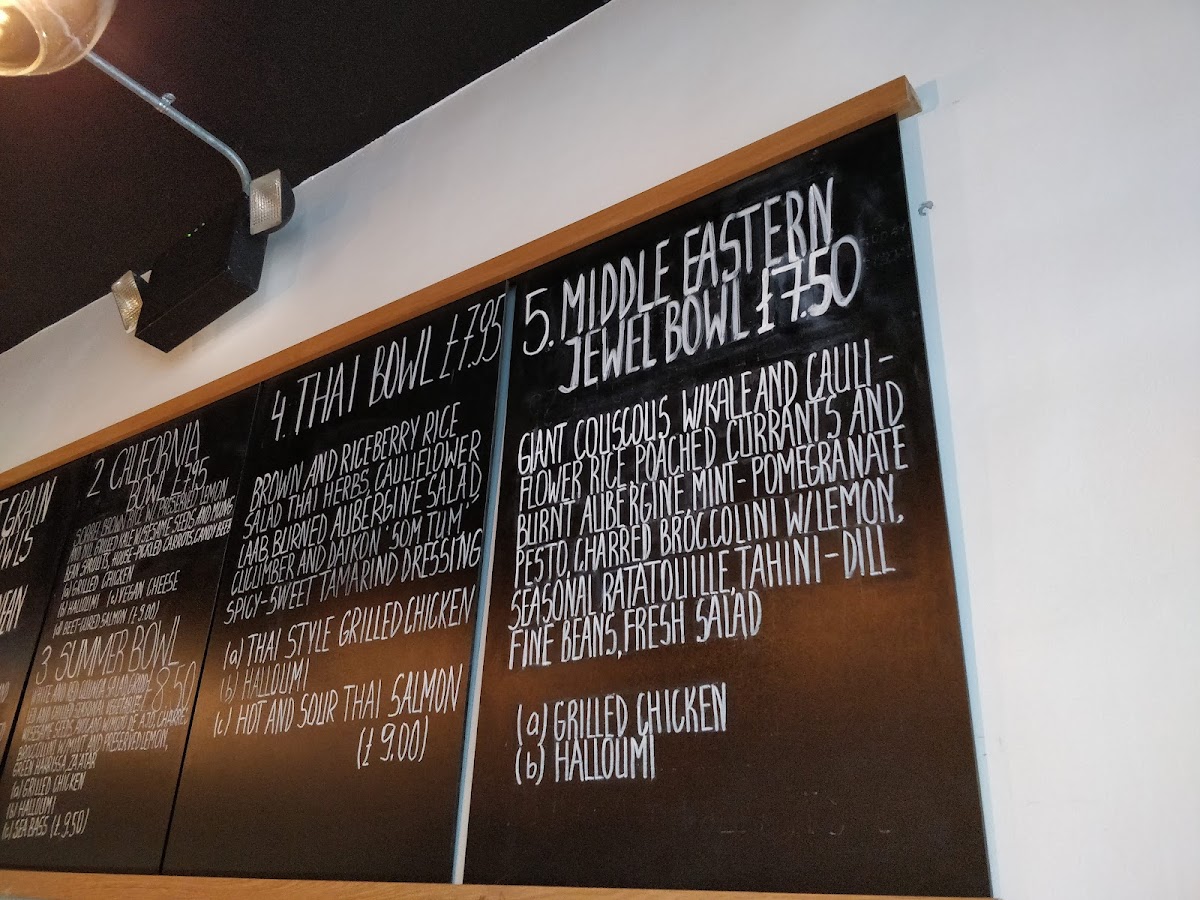 GRAIN
2. CALIFORNIA
BOWL £7.95
BROWN RICE W/ PRESERVED LEMON
KALE W/SESAME SEEDS, AND MUNG
BEAN SPROUTS, HOUSE-PICKLED CARROTS, CANDY BEETS
(a) GRILLED CHICKEN
(b) HALLOUMI (c) VEGAN CHEESE
(d) BEET-CURED SALMON (£9.00)
3. SUMMER BOWL
£8.50
WHITE AND RED QUINOA SALAD
W/SESAME SEEDS, CHARRED
BROCCOLINI W/MINT AND PRESERVED LEMON,
GREEN HARISSA, ZA'ATAR
(a) GRILLED CHICKEN
(b) HALLOUMI
(c) SEA BASS (£9.50)
4. THAI BOWL £7.95
BROWN AND RICEBERRY RICE
SALAD THAI HERBS, CAULIFLOWER
LAAB, BURNED AUBERGINE SALAD,
CUCUMBER AND DAIKON 'SOM TUM',
SPICY-SWEET TAMARIND DRESSING
(a) THAI STYLE GRILLED CHICKEN
(b) HALLOUMI
(c) HOT AND SOUR THAI SALMON
(£ 9.00)
5. MIDDLE EASTERN
JEWEL BOWL £7.50
GIANT COUSCOUS W/KALE AND CAULI-
FLOWER RICE, POACHED CURRANTS AND
BURNT AUBERGINE, MINT-POMEGRANATE
PESTO, CHARRED BROCCOLINI W/LEMON,
SEASONAL RATATOUILLE, TAHINI-DILL
FINE BEANS, FRESH SALAD
(a) GRILLED CHICKEN
(b) HALLOUMI